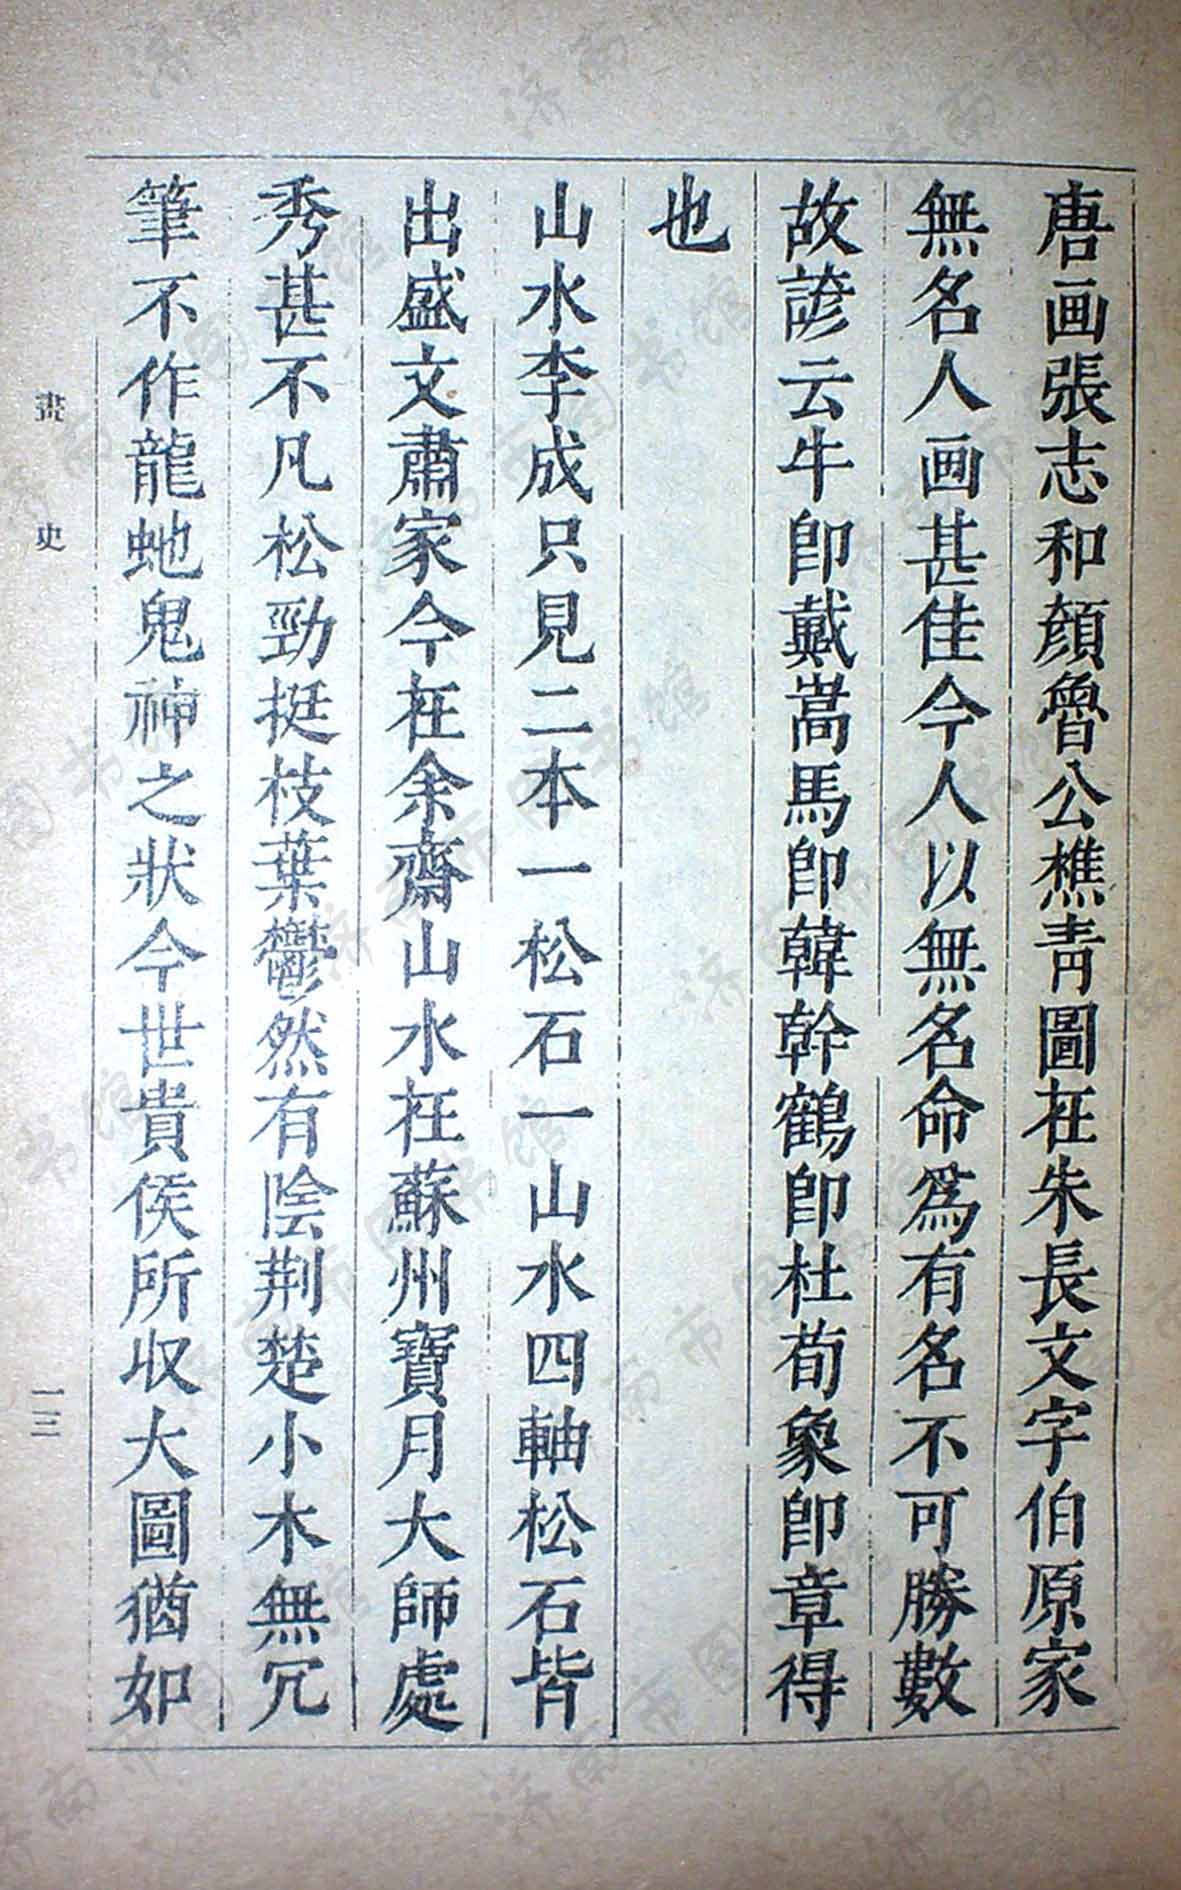 唐画張志和顔魯公樵青圖在朱長文字伯原家
無名人画甚佳今人以無名命爲有名不可勝數
故諺云牛即戴嵩馬即韓幹鶴即杜荀象即章得
也
山水李成只見二本一松石一山水四軸松石皆
出盛文肅家今在余齋山水在蘇州寶月大師處
秀甚不凡松勁挺枝葉鬱然有陰荆楚小木無冗
筆不作龍虵鬼神之狀今世貴侯所収大圖猶如
畫史
一三
济南市图书馆